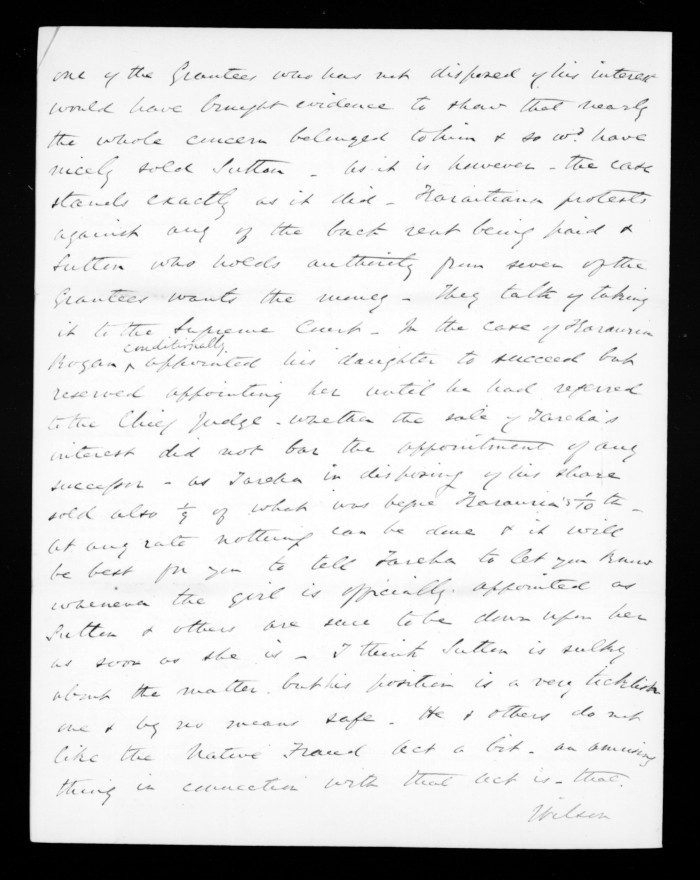 one of the Grantees who has not disposed of his interest
would have brought evidence to show that nearly
the whole concern belonged to him & so wd. have
nicely sold Sutton - as it is however - the case
stands exactly as it did - Haraitiana protests
against any of the back rent being paid &
Sutton who holds authority from seven of the
Grantees wants the money - They talk of taking
it to the Supreme Court - In the case of Harauria
conditionally
Rogan ^ appointed his daughter to succeed but
reserved appointing her until he had referred
to the Chief Judge - whether the sale of Tareha's
interest did not bar the appointment of any
successor - as Tareha in disposing of his share
sold also 1/9 of what was before Harauria's 1/10 th -
at any rate nothing can be done & it will
be best for you to tell Tareha to let you know
whenever the girl is officially appointed as
Sutton & others are sure to be down upon her
as soon as she is - I think Sutton is sulky
about the matter but his position is a very ticklish
one & by no means safe - He & others do not
like the Native Fraud Act a bit - an amusing
thing in connection with that Act is - that
Wilson